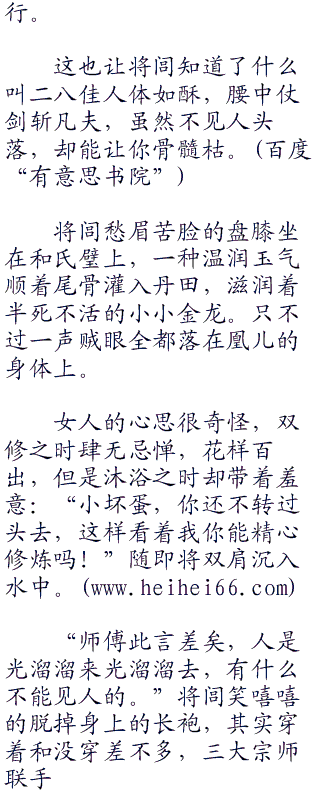 行。
这也让将闾知道了什么
叫二八佳人体如酥，腰中仗
剑斩凡夫，虽然不见人头
落，却能让你骨髓枯。(百度
“有意思书院”)
将闾愁眉苦脸的盘膝坐
在和氏璧上，一种温润玉气
顺着尾骨灌入丹田，滋润着
半死不活的小小金龙。只不
过一声贼眼全都落在凰儿的
身体上。
女人的心思很奇怪，双
修之时肆无忌惮，花样百
出，但是沐浴之时却带着羞
意：“小坏蛋，你还不转过
头去，这样看着我你能精心
修炼吗！”随即将双肩沉入
水中。(www.heihei66.com)
“师傅此言差矣，人是
光溜溜来光溜溜去，有什么
不能见人的。”将闾笑嘻嘻
的脱掉身上的长袍，其实穿
着和没穿差不多，三大宗师
联手